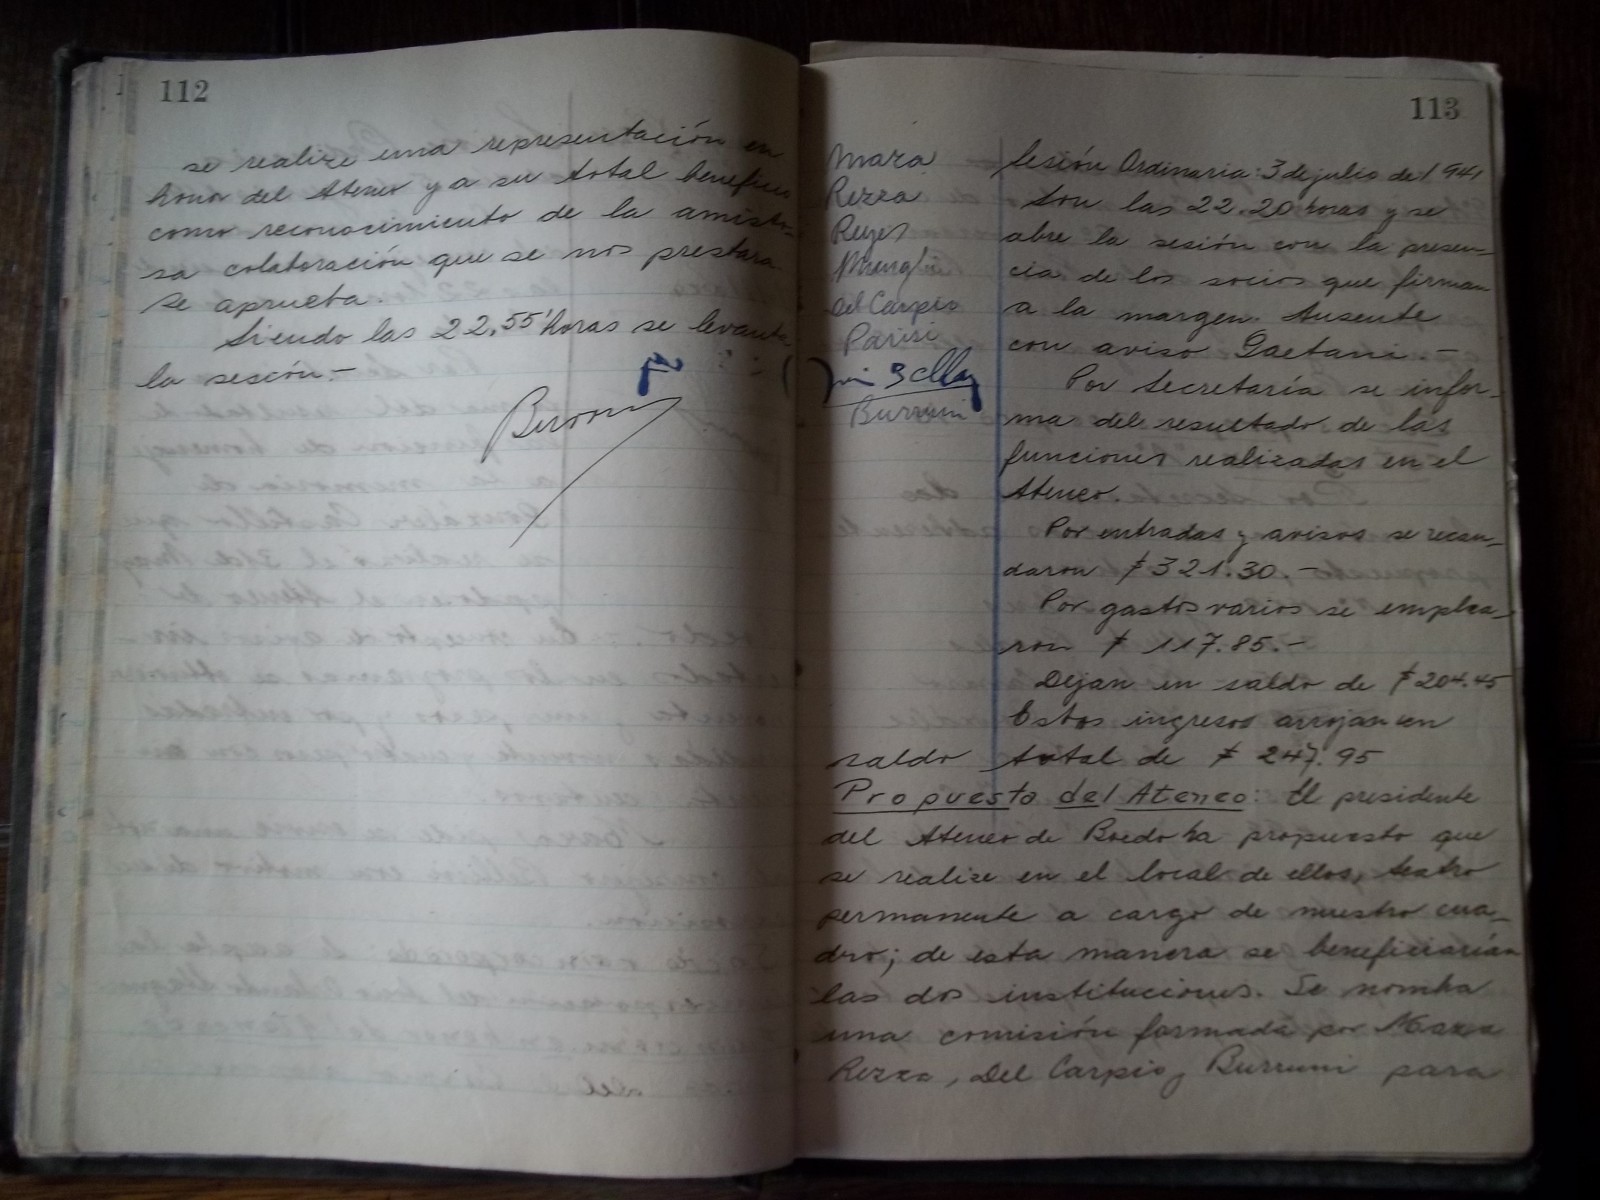 112
se realize una representación en
honor del Ateneo y a su total beneficio
como reconocimiento de la amisto-
sa colaboración que se nos prestara
se aprueba.
Siendo las 22,55 horas se levanta
la sesión.-
Burruni
113
Maza
Rezza
Reyes
Del Carpio
Parisi
Burruni
Sesión Ordinaria: 3 de julio de 1941
Son las 22.20 horas y se
abre la sesión con la presen-
cia de los socios que firman
a la margen. Ausente
con aviso Gaetani.-
Por Secretaría se infor-
ma del resultado de las
funciones realizadas en el
Ateneo.
Por entradas y avisos se recau-
daron $ 321.30.-
Por gastos varios se emplea-
ron $ 117.85.-
Dejan en saldo de $ 204.45
Estos ingresos arrojan un
saldo total de $ 247.95
Propuesta del Ateneo: El presidente
del Ateneo de Boedo ha propuesto que
se realize en el local de ellos, teatro
permanente a cargo de nuestro cua-
dro; de esta manera se beneficiarían
las dos instituciones. Se nombra
una comisión formada por Mazza
Rezza, Del Carpio y Burruni para